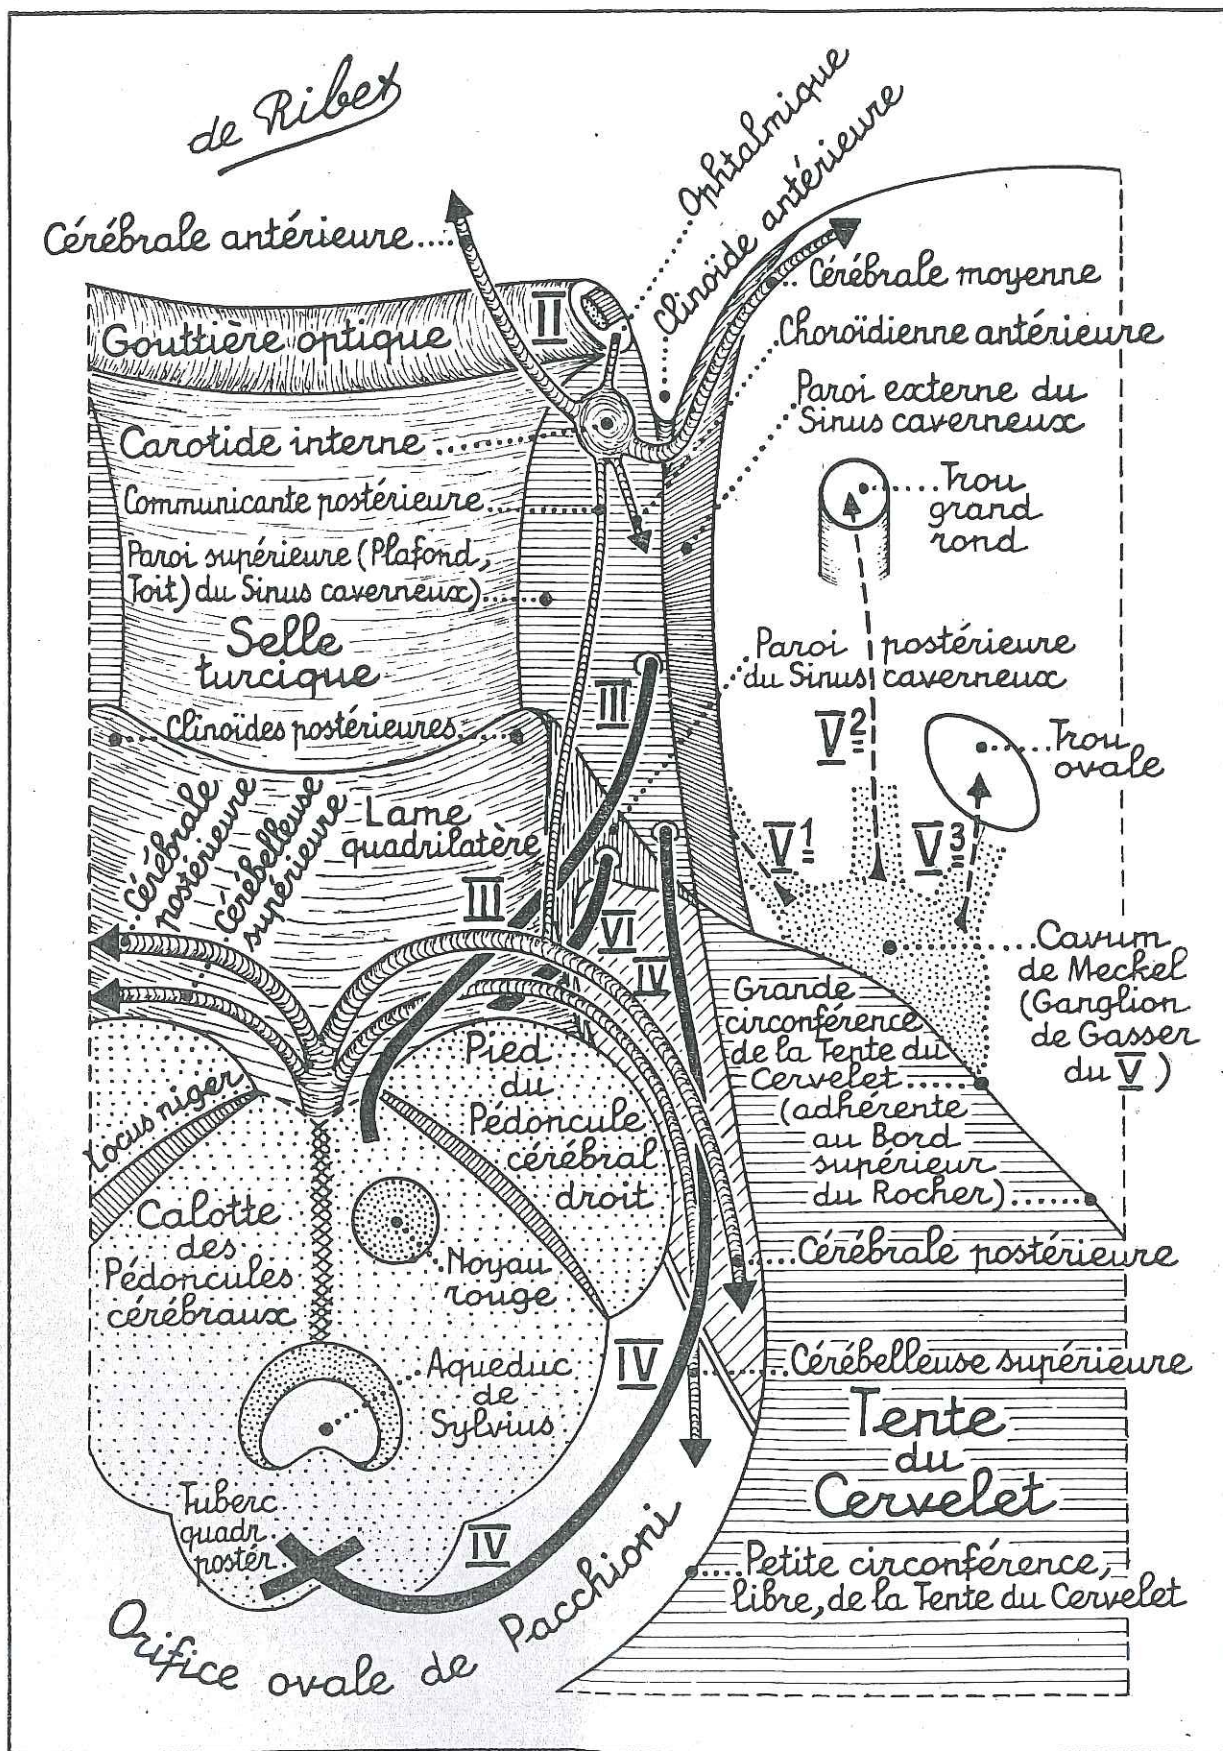 de Ribet
Ophtalmique
Clinoïde antérieure
Cérébrale antérieure
II
Gouttière optique
Cérébrale moyenne
Choroïdienne antérieure
Paroi externe du
Sinus caverneux
Carotide interne
Communicante postérieure
Trou
grand
rond
Paroi supérieure (Plafond,
Toit) du Sinus caverneux)
Selle
turcique
Paroi postérieure
du Sinus caverneux
III
Clinoïdes postérieures
V2
Trou
ovale
Cérébrale
postérieure
Cérébelleuse
supérieure
Lame
quadrilatère
V1
V3
III
VI
IV
Cavum
de Meckel
(Ganglion
de Gasser
du V)
Grande
circonférence
de la Tente du
Cervelet
(adhérente
au Bord
supérieur
du Rocher)
Locus niger
Pied
du
Pédoncule
cérébral
droit
Calotte
des
Pédoncules
cérébraux
Noyau
rouge
Cérébrale postérieure
IV
Cérébelleuse supérieure
Aqueduc
de
Sylvius
Tente
du
Cervelet
Tuberc
quadr.
postér.
IV
Petite circonférence,
libre, de la Tente du Cervelet
Orifice ovale de Pacchioni